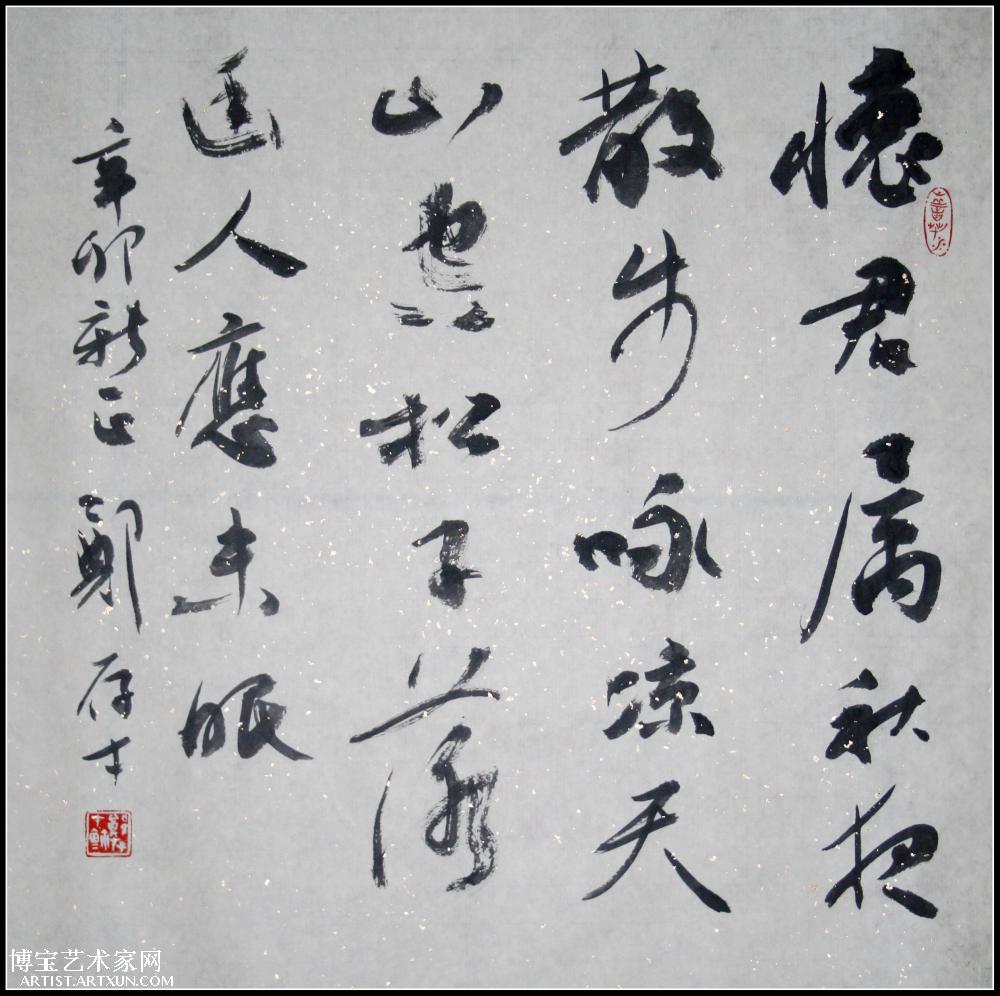 懷君属秋夜
散步咏凉天
山空松子落
幽人應未眠
辛卯新正 鄭存
博宝艺术家网
ARTIST.ARTXUN.COM